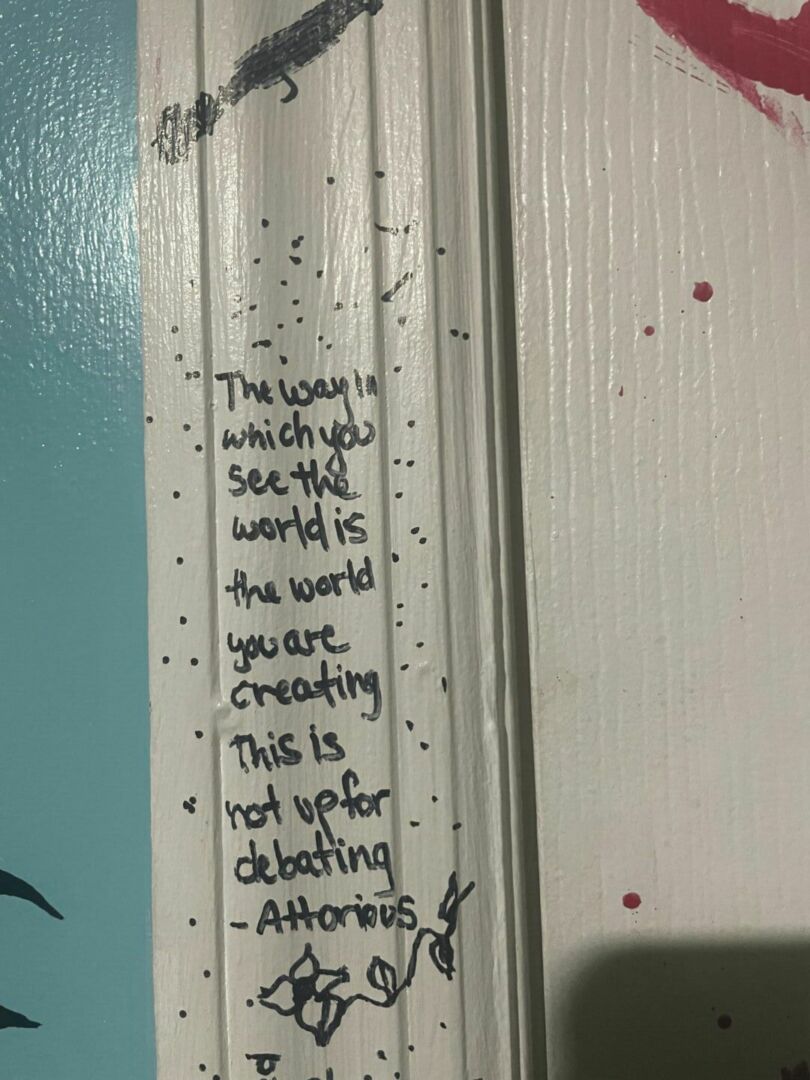 The way In
which you
see the
world is
the world
you are
creating
This is
not up for
debating
- Attorious